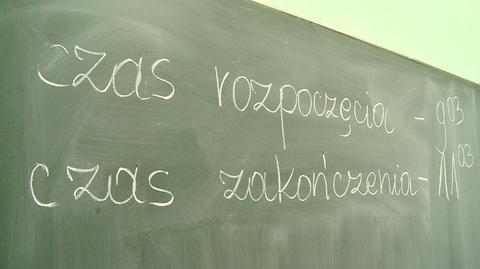 czas rozpoczęcia - 9⁰³
czas zakończenia - 11⁰³